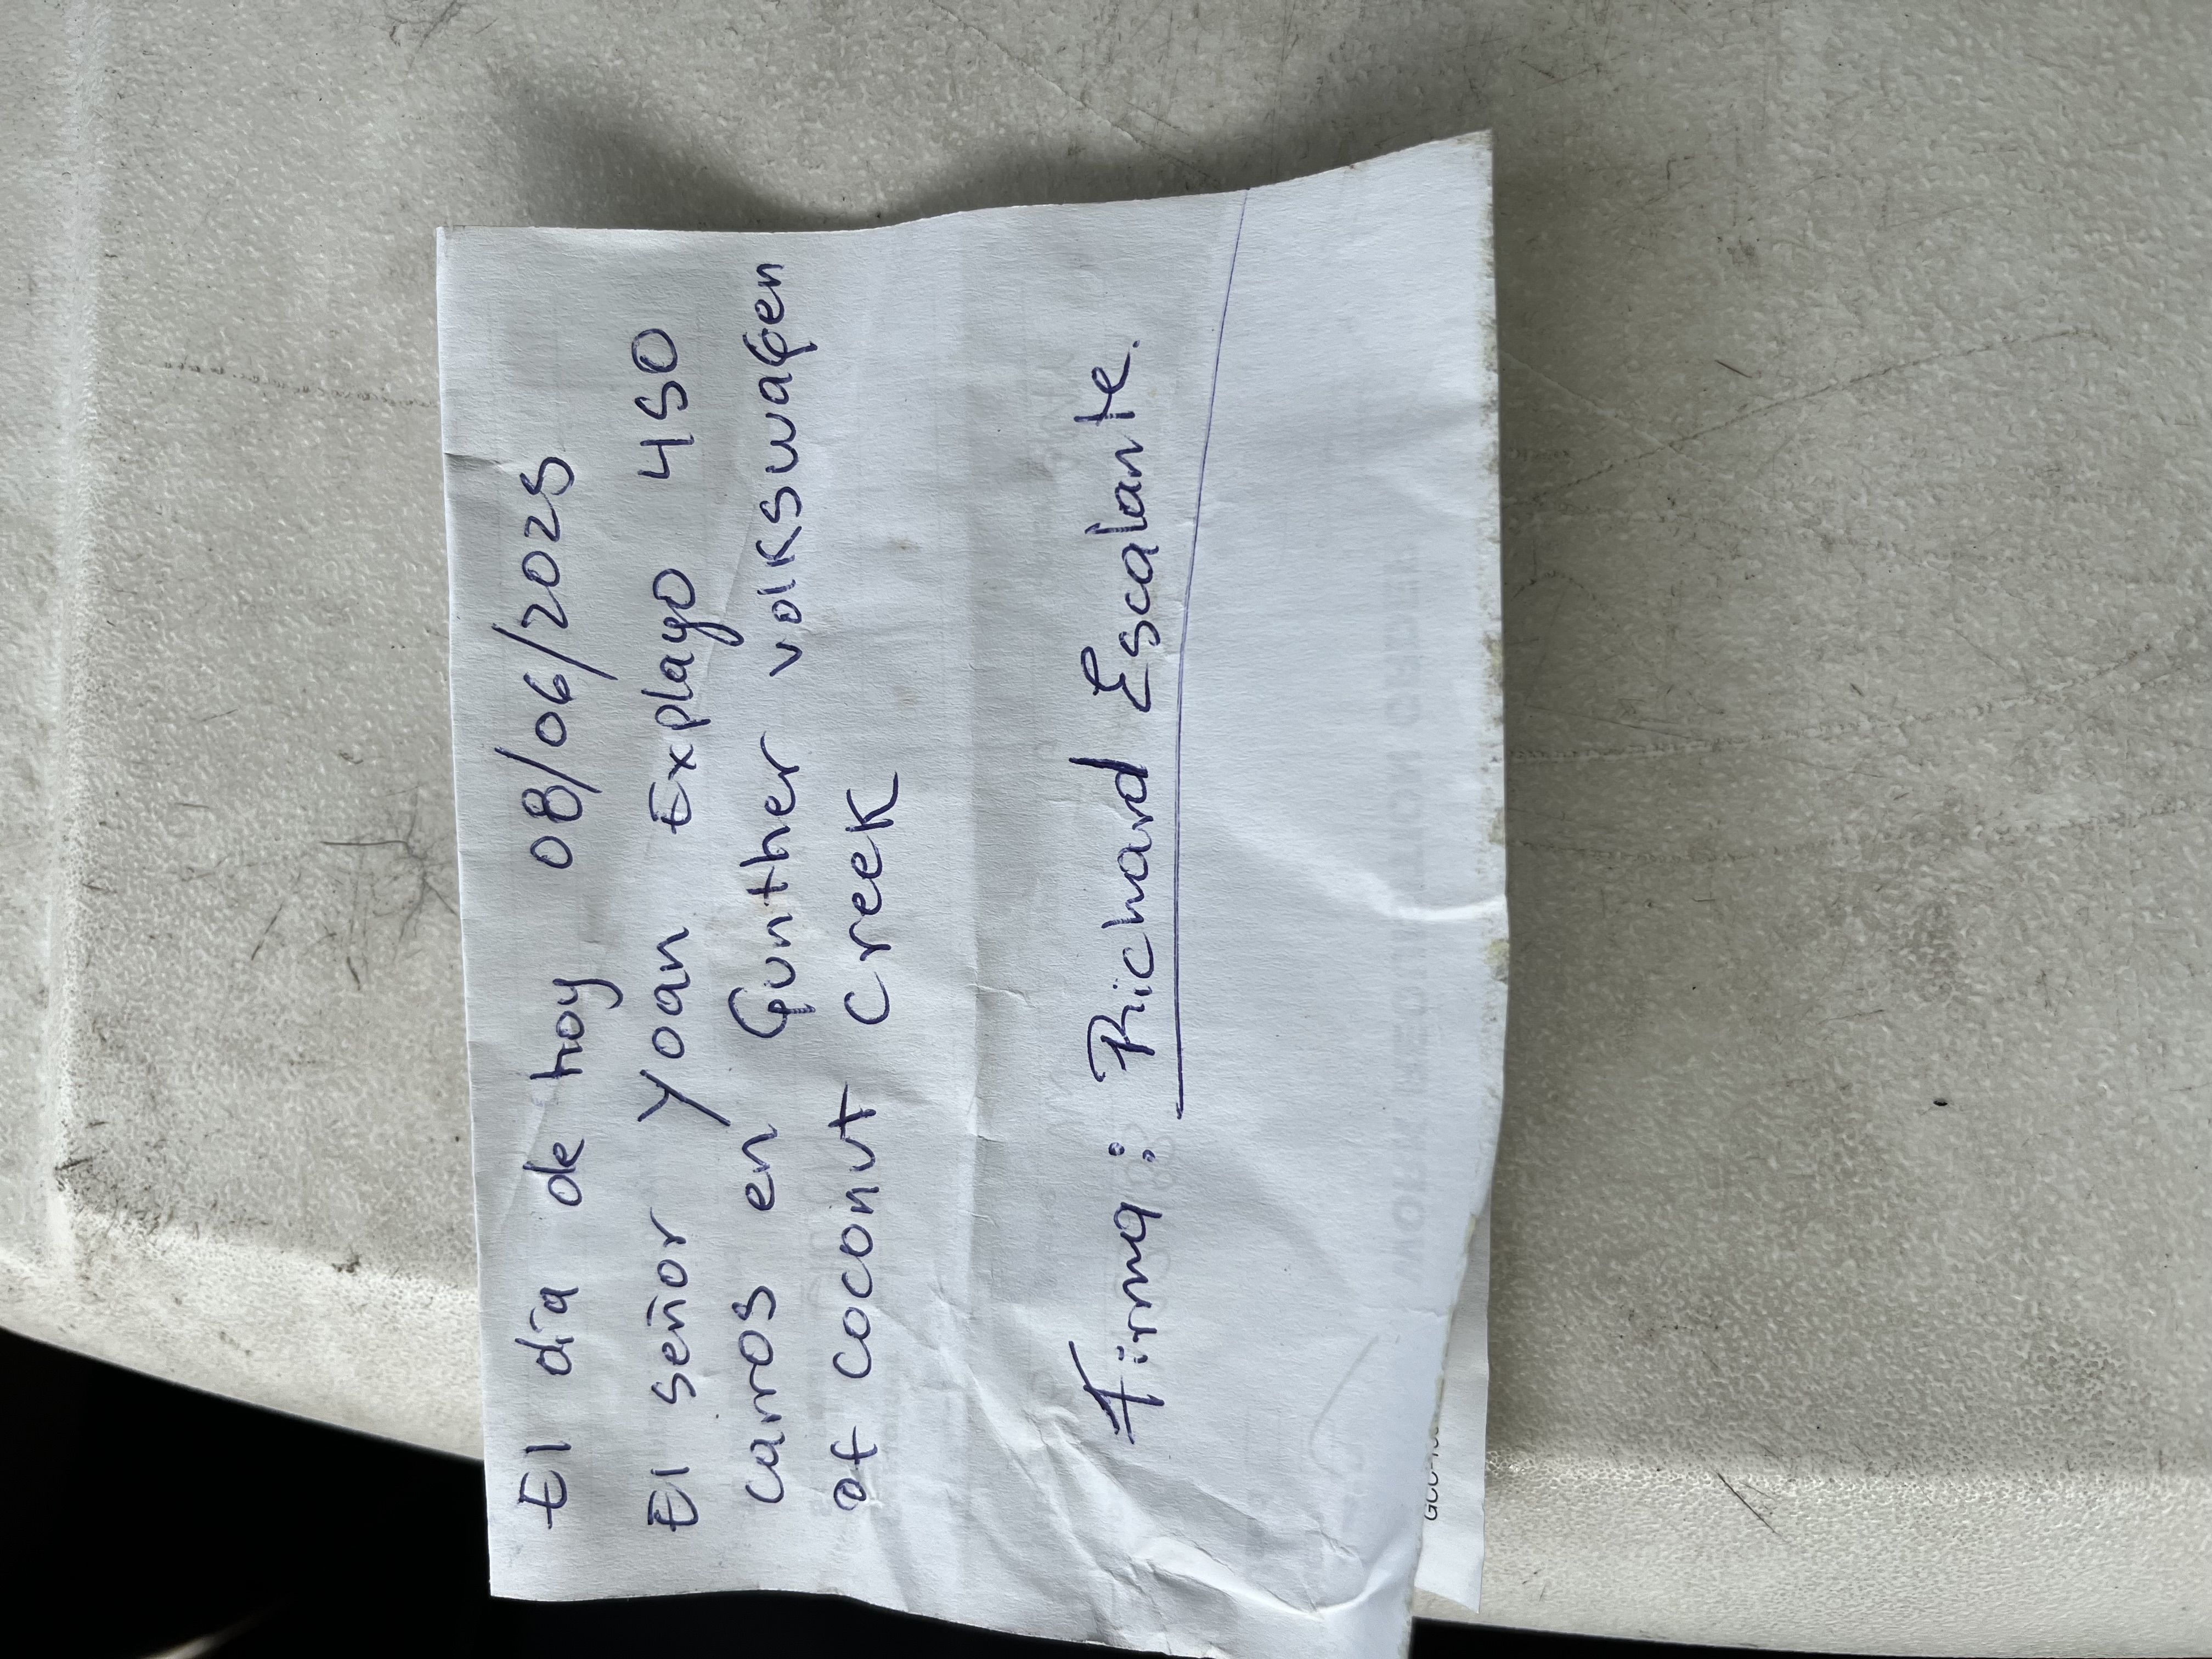 El día de hoy 08/06/2025
El señor Yoan Explayo 450
carros en Gunther volkswagen
of coconut creek
Firma: Richard Escalante.